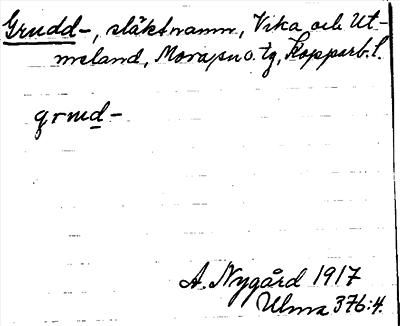 Grudd-, släktnamn, Vika och Ut-
meland, Mora sn o. tg, Kopparb. l.
grud-
A. Nygård 1917
Ulma 376:4.